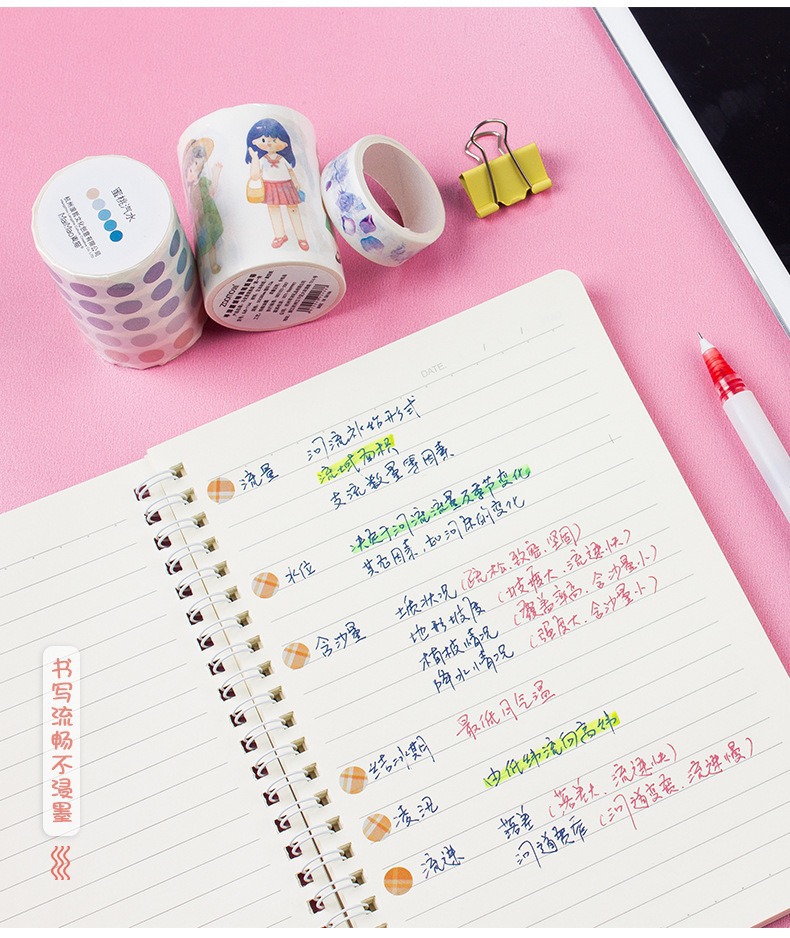 蜜桃汽水
杭州漫和文化创意有限公司
DATE
河流补给形式
流量
流域面积
支流数量等因素
水位
决定于河流流量及季节变化
其它因素,如河床的变化
含沙量
土壤状况(疏松、致密、坚固)
地形坡度(坡度大、流速快)
植被情况(覆盖率高、含沙量小)
降水情况(强度大、含沙量小)
结冰期
最低月气温
凌汛
由低纬流向高纬
流速
落差(落差大、流速快)
河道宽窄(河道变宽、流速慢)
书写流畅不浸墨